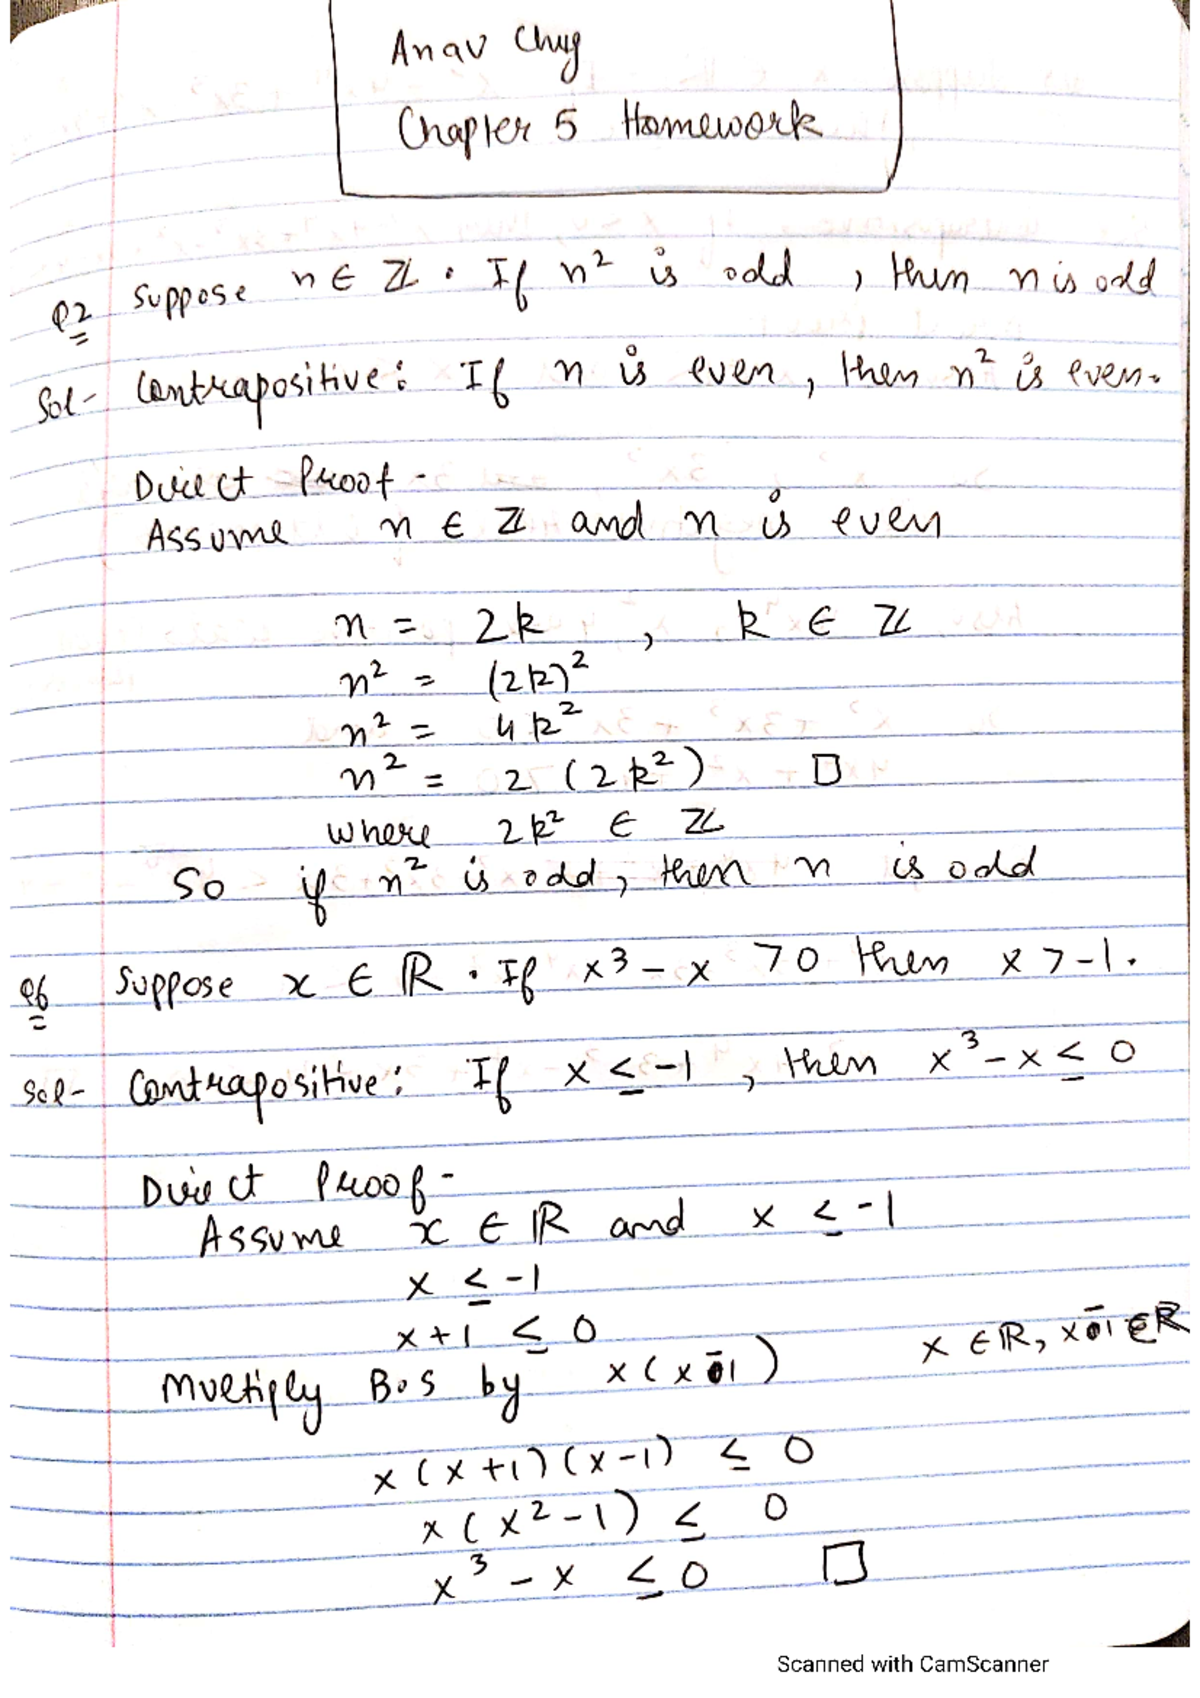 Anav Chug
Chapter 5 Homework
Q2 Suppose n ∈ ℤ. If n² is odd, then n is odd
Sol- Contrapositive: If n is even, then n² is even.
Direct Proof -
Assume n ∈ ℤ and n is even
n = 2k, k ∈ ℤ
n² = (2k)²
n² = 4k²
n² = 2(2k²) □
where 2k² ∈ ℤ
So if n² is odd, then n is odd
Q6 Suppose x ∈ ℝ. If x³ - x > 0 then x > -1.
Sol- Contrapositive: If x ≤ -1, then x³ - x ≤ 0
Direct Proof -
Assume x ∈ ℝ and x ≤ -1
x ≤ -1
x + 1 ≤ 0
Multiply B.S by x(x-1) x ∈ ℝ, x-1 ∈ ℝ
x(x+1)(x-1) ≤ 0
x(x²-1) ≤ 0
x³ - x ≤ 0 □
Scanned with CamScanner